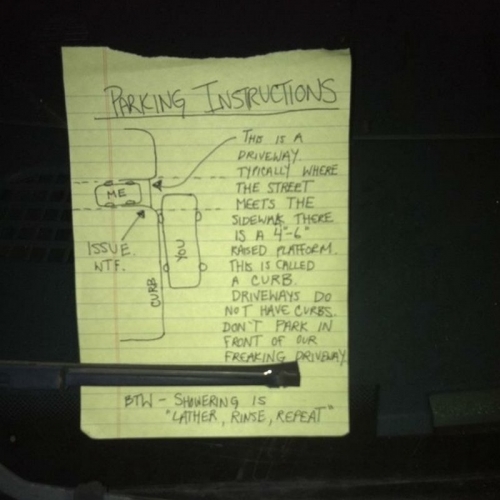 PARKING INSTRUCTIONS
THIS IS A
DRIVEWAY.
TYPICALLY WHERE
THE STREET
MEETS THE
SIDEWALK THERE
IS A 4"-6"
RAISED PLATFORM.
THIS IS CALLED
A CURB.
DRIVEWAYS DO
NOT HAVE CURBS.
DON'T PARK IN
FRONT OF OUR
FREAKING DRIVEWAY
ME
ISSUE.
WTF.
YOU
CURB
BTW - SHOWERING IS
"LATHER, RINSE, REPEAT"